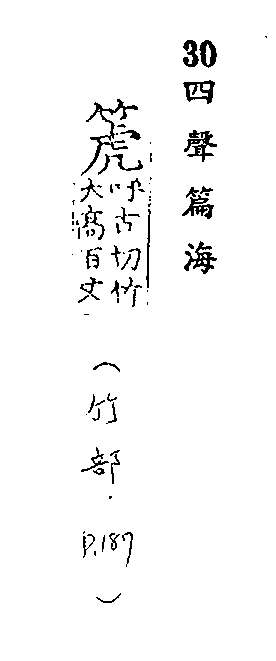 30四聲篇海
箎
呼古切竹
大高百丈
（竹部．P.187）